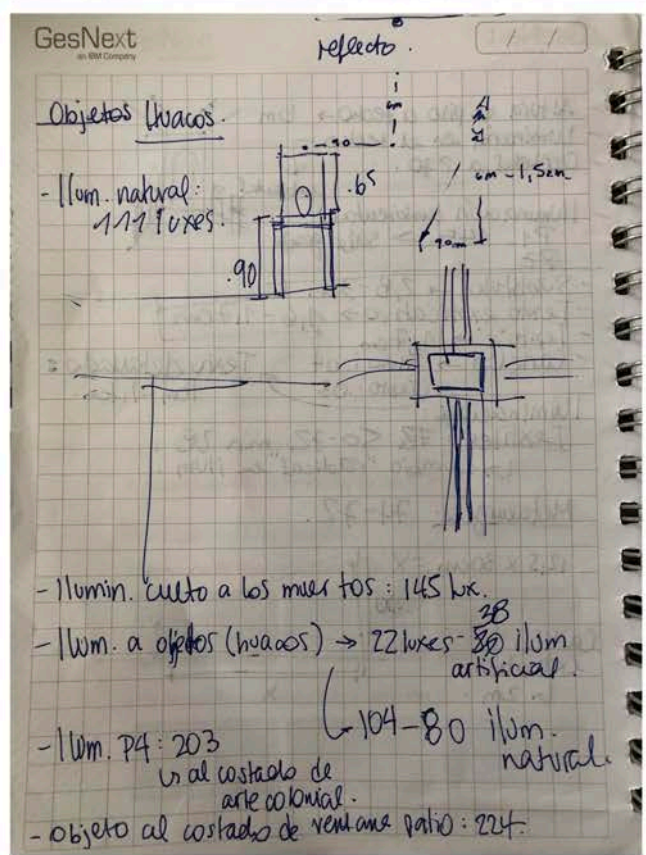 GesNext
an IBM Company
reflecto.
/ /
Objetos Huacos.
- Ilum. natural:
111 luxes.
.90
.65
6m
6m-1,5cm
90m
.90
- Ilumin. culto a los muertos: 145 lux.
- Ilum. a objetos (huacos) → 22 luxes - 28 ilum
artificial.
104-80 ilum.
natural.
- Ilum. P4: 203
al costado de
arte colonial.
- objeto al costado de ventana patio: 224.